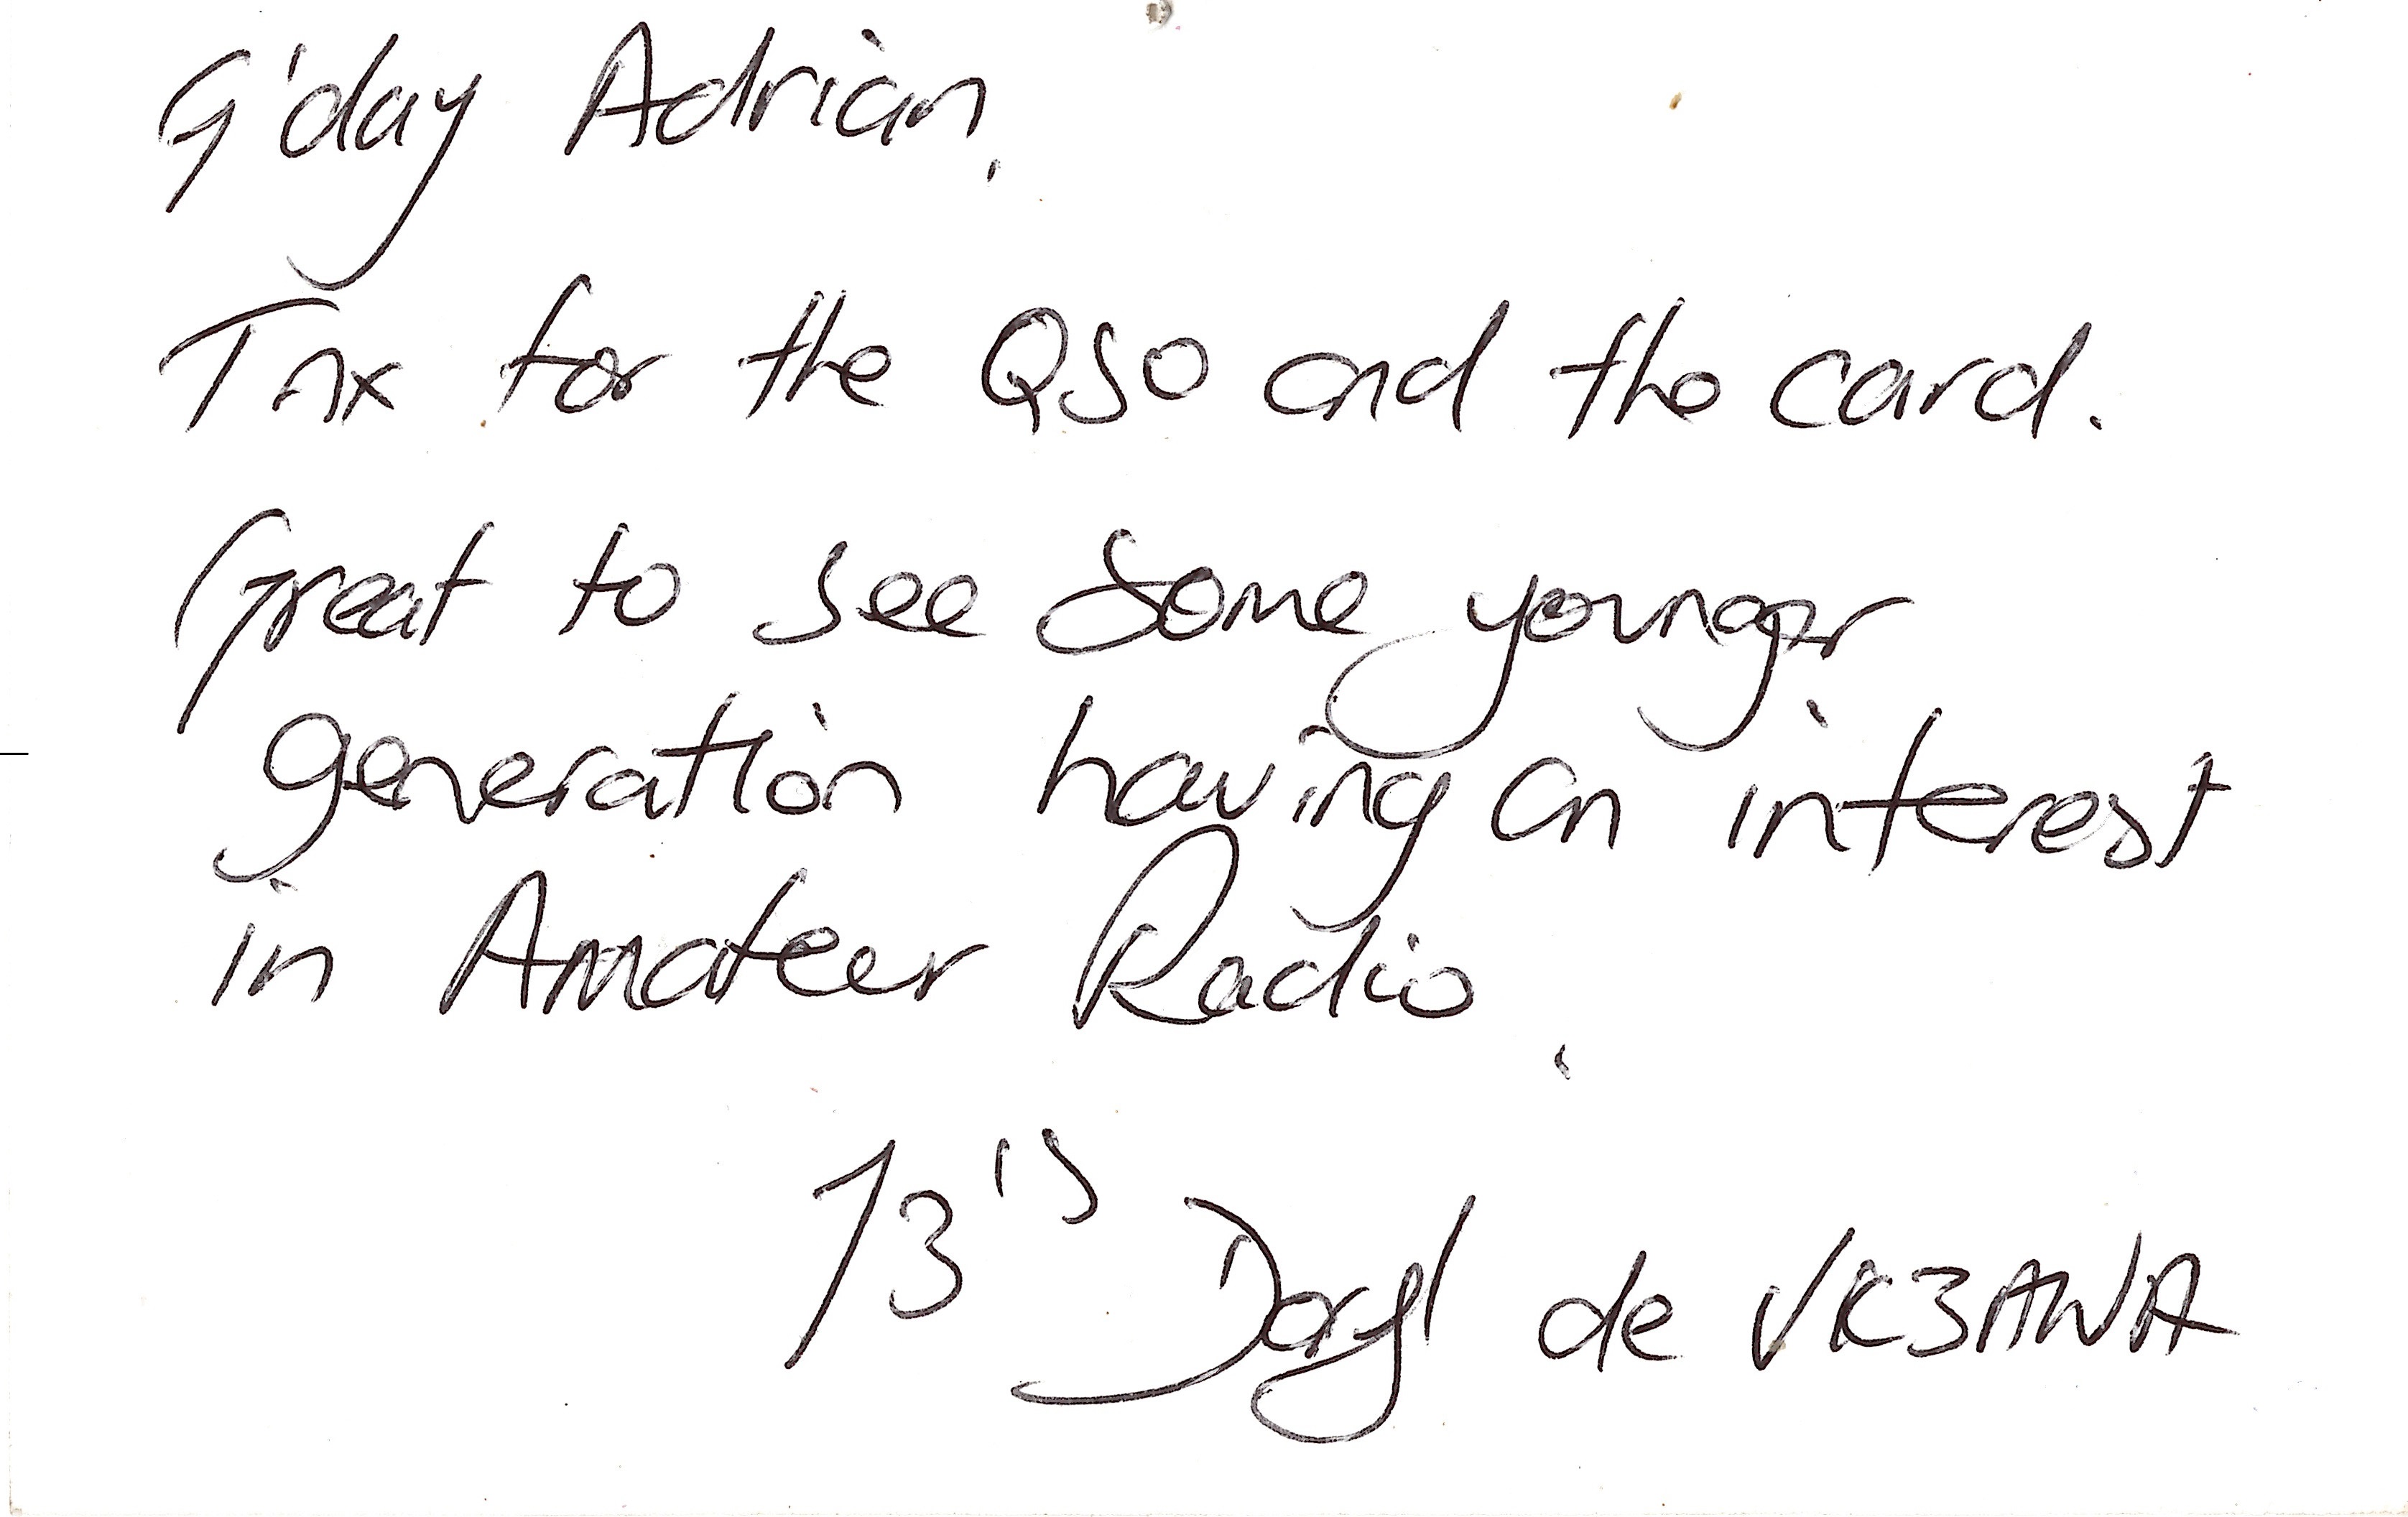 G'day Adrian,
Tnx for the QSO and the card.
Great to see some younger
generation having an interest
in Amateur Radio.
73's Daryl de VK3AWA